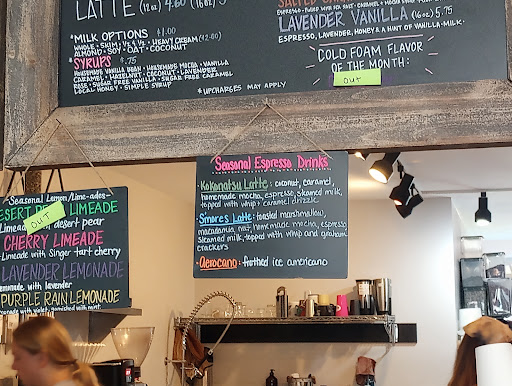 LATTE (12oz) 4.60 (16oz)
*MILK OPTIONS $1.00
WHOLE · SKIM · ½ & ½ · HEAVY CREAM (+2.50)
ALMOND · SOY · OAT · COCONUT
*SYRUPS $.75
HOMEMADE VANILLA BEAN · HOMEMADE MOCHA · VANILLA
CARAMEL · HAZELNUT · COCONUT · LAVENDER
ROSE · SUGAR FREE VANILLA · SUGAR FREE CARAMEL
LOCAL HONEY · SIMPLE SYRUP
*UPCHARGES MAY APPLY
SALTED
LAVENDER VANILLA (16oz) 5.75
ESPRESSO, LAVENDER, HONEY & A HINT OF VANILLA · MILK.
COLD FOAM FLAVOR
OF THE MONTH:
OUT
Seasonal Espresso Drinks
· Kokonatsu Latte: coconut, caramel,
homemade mocha, espresso, steamed milk,
topped with whip + caramel drizzle
· S'mores Latte: toasted marshmallow,
macadamia nut, homemade mocha, espresso
steamed milk, topped with whip and graham
crackers
· Aerocano: frothed ice americano
Seasonal Lemon/Lime-ades
DESERT LIMEADE
desert pear
OUT
CHERRY LIMEADE
Limeade with Singer tart cherry
LAVENDER LEMONADE
lemonade with lavender
PURPLE RAIN LEMONADE
lemonade with violet, garnished with mint